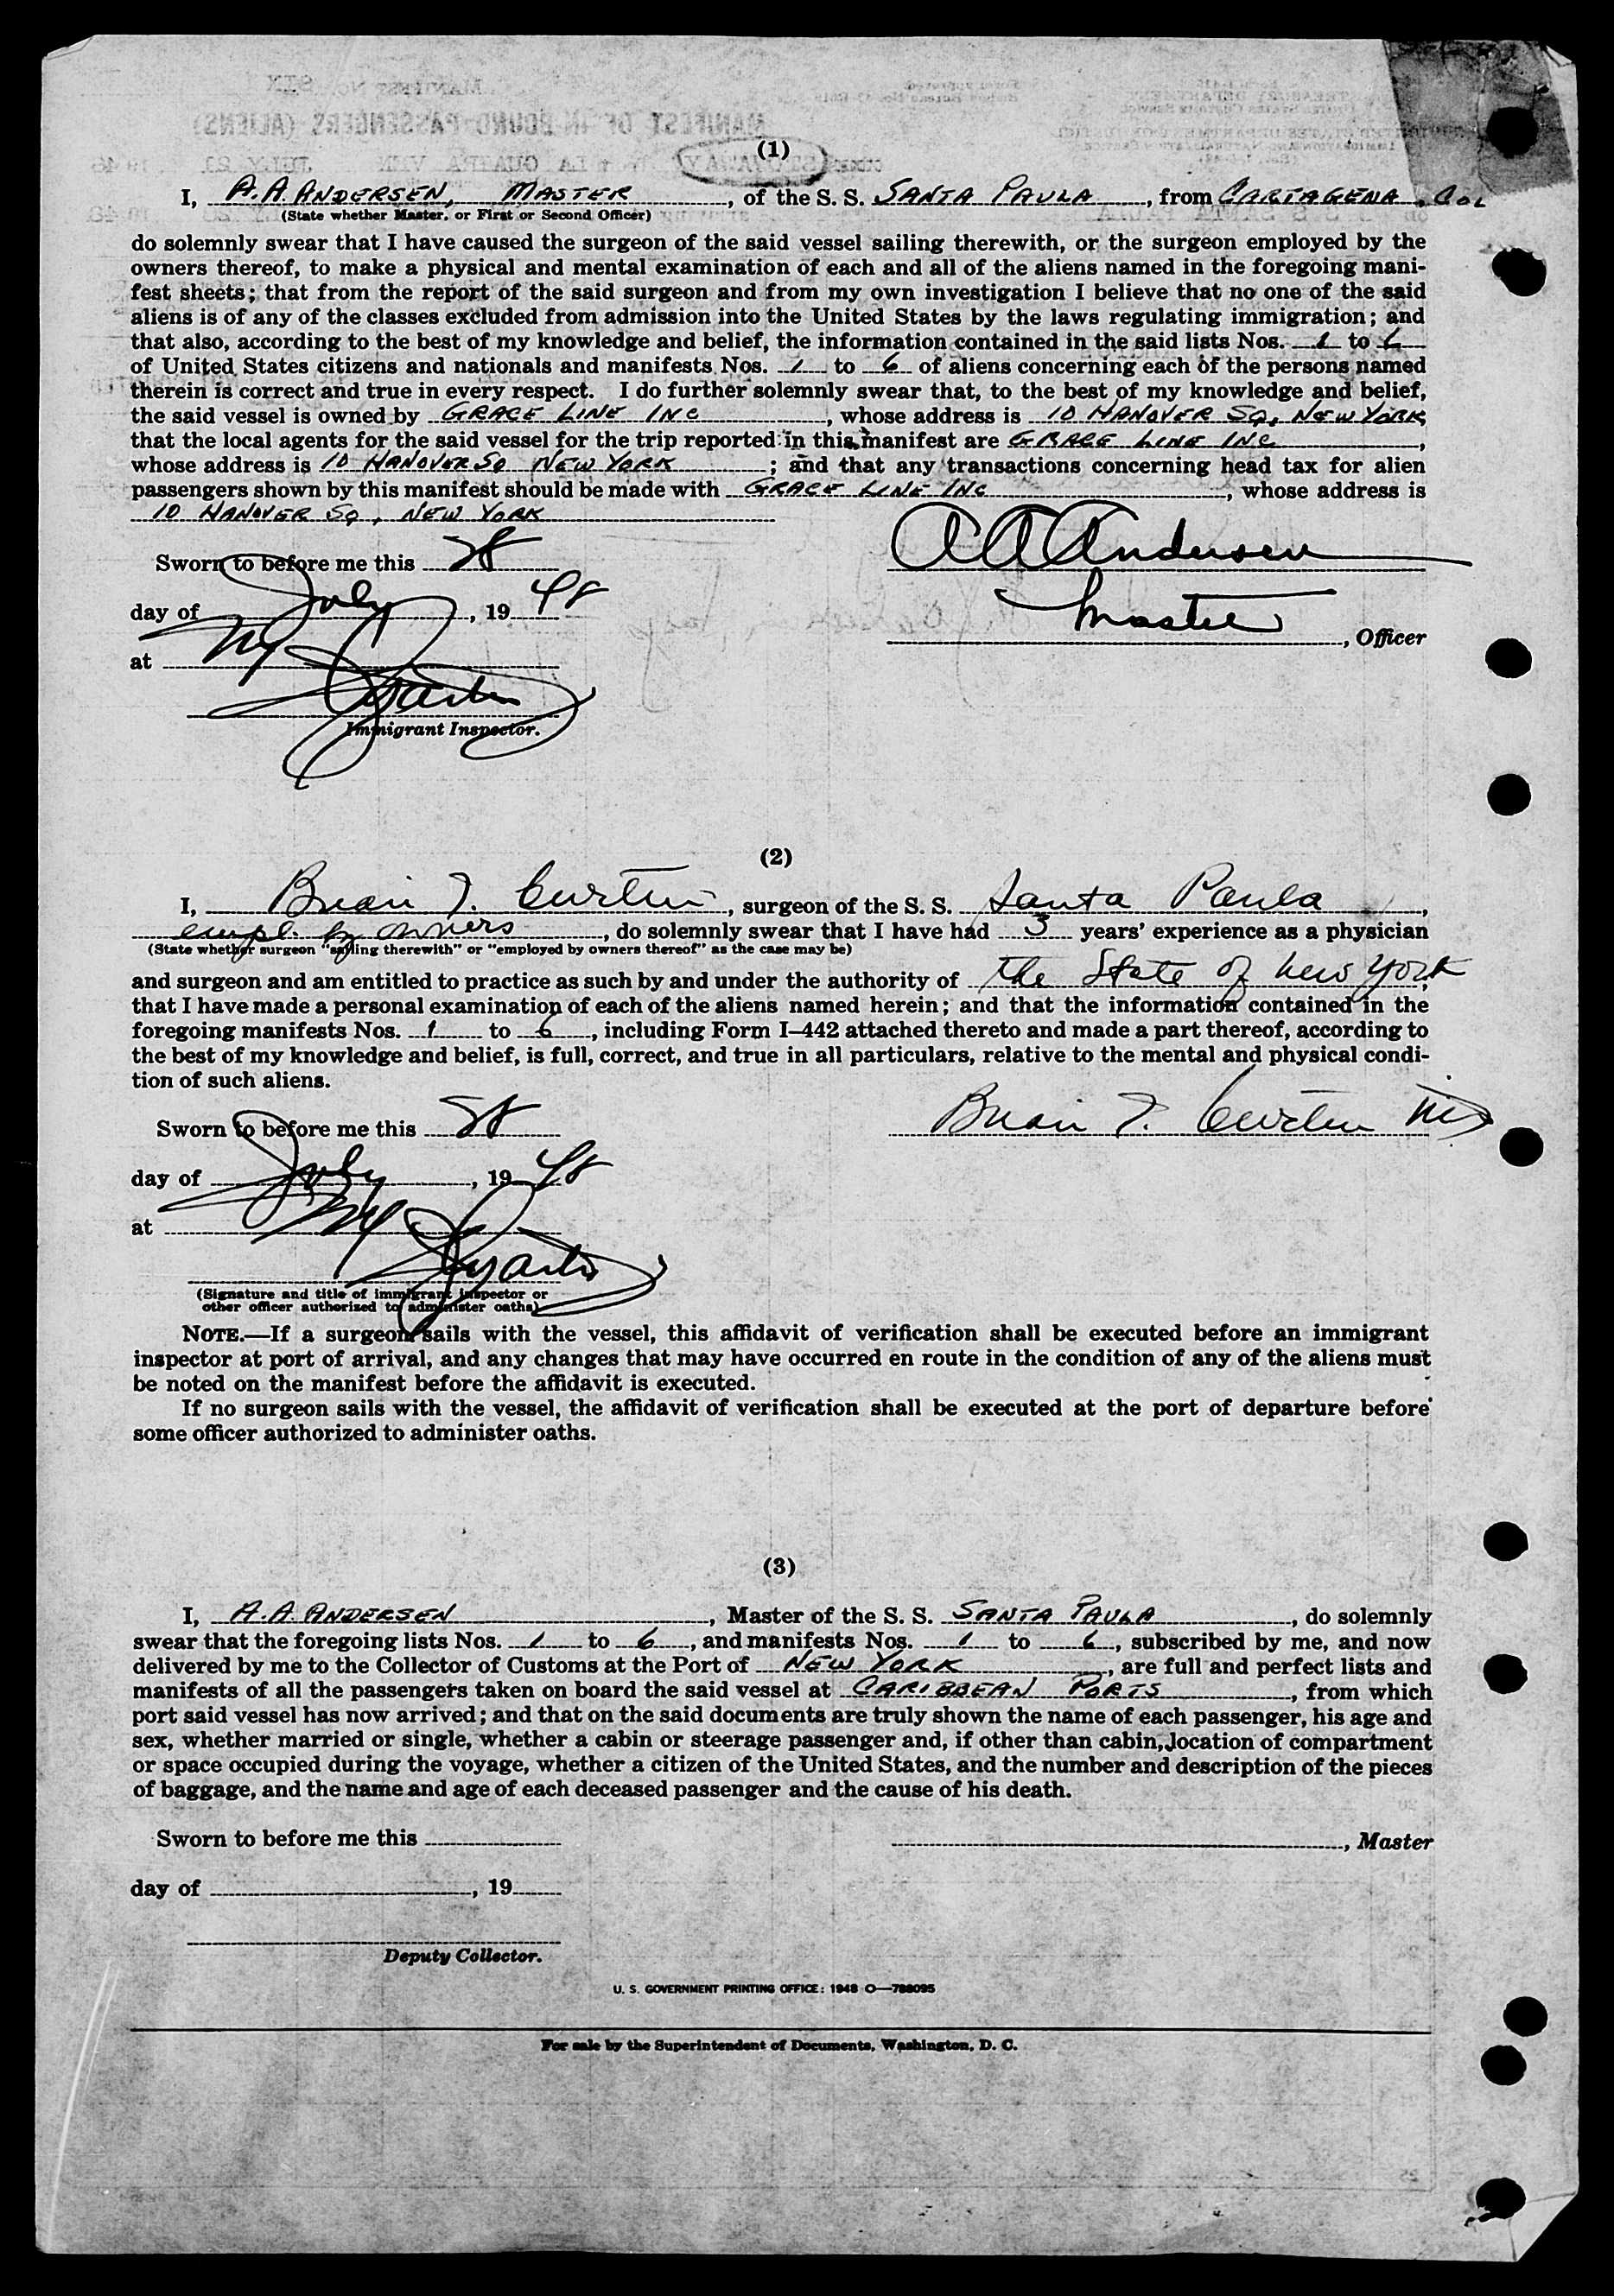 (1)
I, A. A. ANDERSEN, MASTER, of the S. S. SANTA PAULA, from CARTAGENA, COL
(State whether Master, or First or Second Officer)
do solemnly swear that I have caused the surgeon of the said vessel sailing therewith, or the surgeon employed by the
owners thereof, to make a physical and mental examination of each and all of the aliens named in the foregoing mani-
fest sheets; that from the report of the said surgeon and from my own investigation I believe that no one of the said
aliens is of any of the classes excluded from admission into the United States by the laws regulating immigration; and
that also, according to the best of my knowledge and belief, the information contained in the said lists Nos. 1 to 6
of United States citizens and nationals and manifests Nos. 1 to 6 of aliens concerning each of the persons named
therein is correct and true in every respect. I do further solemnly swear that, to the best of my knowledge and belief,
the said vessel is owned by GRACE LINE INC, whose address is 10 HANOVER SQ, NEW YORK,
that the local agents for the said vessel for the trip reported in this manifest are GRACE LINE INC,
whose address is 10 HANOVER SQ NEW YORK; and that any transactions concerning head tax for alien
passengers shown by this manifest should be made with GRACE LINE INC, whose address is
10 HANOVER SQ, NEW YORK
Sworn to before me this 28
A A Andersen
day of July, 19 48
Master, Officer
at NY
Immigrant Inspector.
(2)
I, Brian T. Curtin, surgeon of the S. S. Santa Paula,
empl. by owners, do solemnly swear that I have had 3 years' experience as a physician
(State whether surgeon "sailing therewith" or "employed by owners thereof" as the case may be)
and surgeon and am entitled to practice as such by and under the authority of the State of New York,
that I have made a personal examination of each of the aliens named herein; and that the information contained in the
foregoing manifests Nos. 1 to 6, including Form I-442 attached thereto and made a part thereof, according to
the best of my knowledge and belief, is full, correct, and true in all particulars, relative to the mental and physical condi-
tion of such aliens.
Sworn to before me this 28
Brian T. Curtin MD
day of July, 19 48
at NY
(Signature and title of immigrant inspector or
other officer authorized to administer oaths)
NOTE.—If a surgeon sails with the vessel, this affidavit of verification shall be executed before an immigrant
inspector at port of arrival, and any changes that may have occurred en route in the condition of any of the aliens must
be noted on the manifest before the affidavit is executed.
If no surgeon sails with the vessel, the affidavit of verification shall be executed at the port of departure before
some officer authorized to administer oaths.
(3)
I, A. A ANDERSEN, Master of the S. S. SANTA PAULA, do solemnly
swear that the foregoing lists Nos. 1 to 6, and manifests Nos. 1 to 6, subscribed by me, and now
delivered by me to the Collector of Customs at the Port of NEW YORK, are full and perfect lists and
manifests of all the passengers taken on board the said vessel at CARIBBEAN PORTS, from which
port said vessel has now arrived; and that on the said documents are truly shown the name of each passenger, his age and
sex, whether married or single, whether a cabin or steerage passenger and, if other than cabin, location of compartment
or space occupied during the voyage, whether a citizen of the United States, and the number and description of the pieces
of baggage, and the name and age of each deceased passenger and the cause of his death.
Sworn to before me this
, Master
day of , 19
Deputy Collector.
U. S. GOVERNMENT PRINTING OFFICE: 1948 O—788095
For sale by the Superintendent of Documents, Washington, D. C.